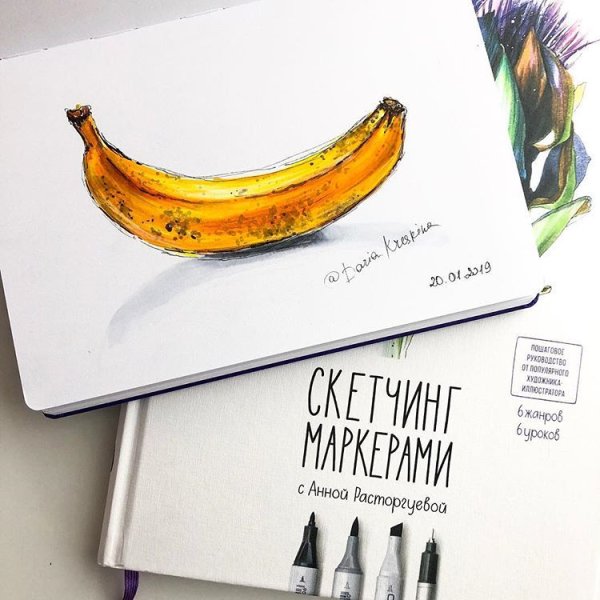 @Daria Kreskina
20.01.2019
ПОШАГОВОЕ
РУКОВОДСТВО
ОТ ПОПУЛЯРНОГО
ХУДОЖНИКА-
ИЛЛЮСТРАТОРА
6 жанров
6 уроков
СКЕТЧИНГ
МАРКЕРАМИ
с Анной Расторгуевой